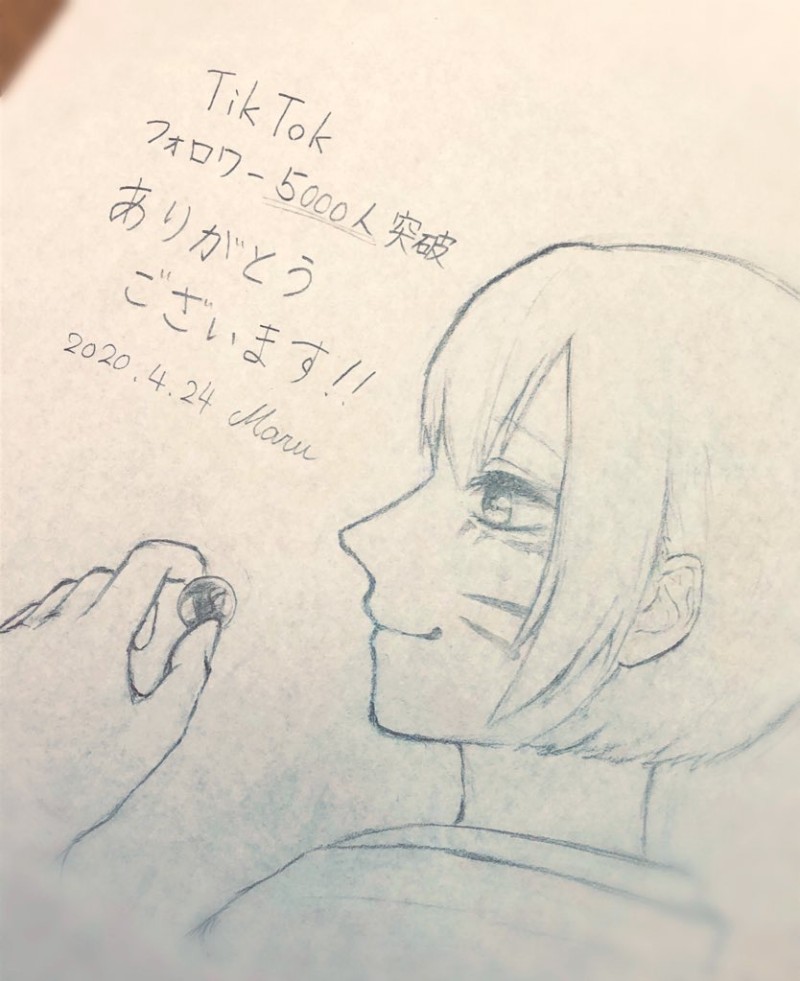 TikTok
フォロワー5000人突破
ありがとう
ございます!!
2020.4.24 Maru